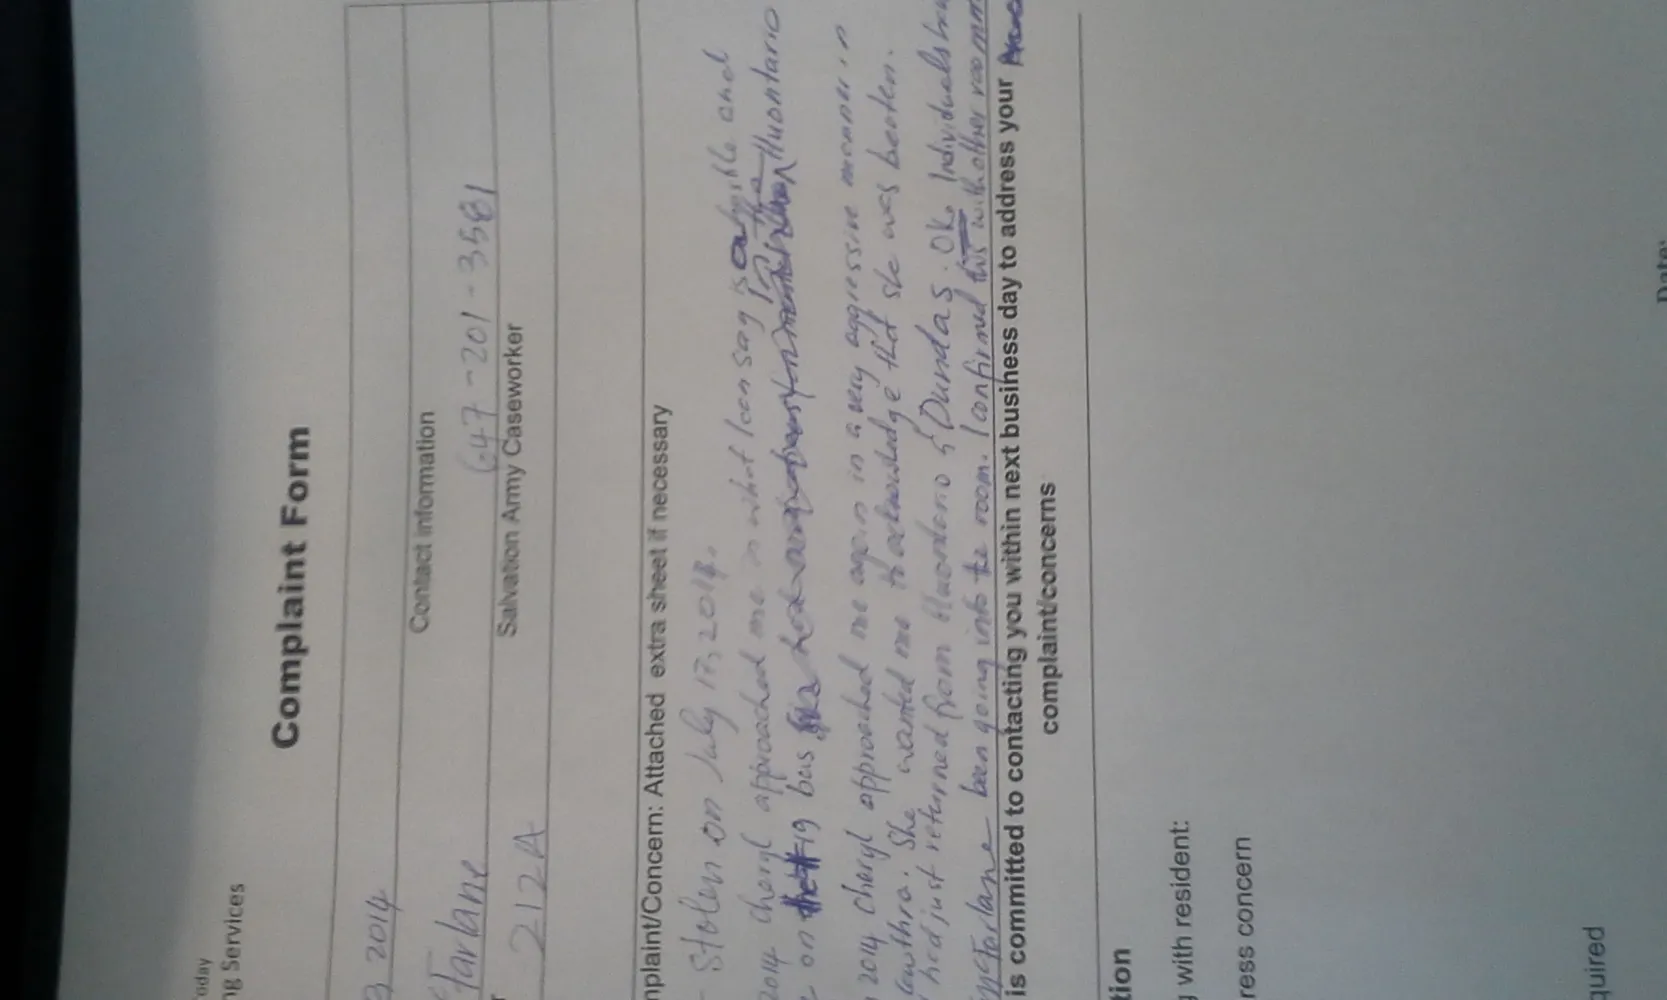 oday
ng Services
Complaint Form
3 2014
Contact information
Farlane
647-201-3581
Salvation Army Caseworker
212A
nplaint/Concern: Attached extra sheet if necessary
Stolen on July 17, 2014.
2014 Cheryl approached me in what I can say is and
on the #19 bus Huontario
2014 Cheryl approached me again in a very aggressive manner in
She wanted me to acknowledge that she was beaten.
had just returned from Huontario & Dundas. Ok. Individuals
been going into the room. I confirmed this with other
is committed to contacting you within next business day to address your
complaint/concerns
tion
with resident:
ress concern
quired
Date: